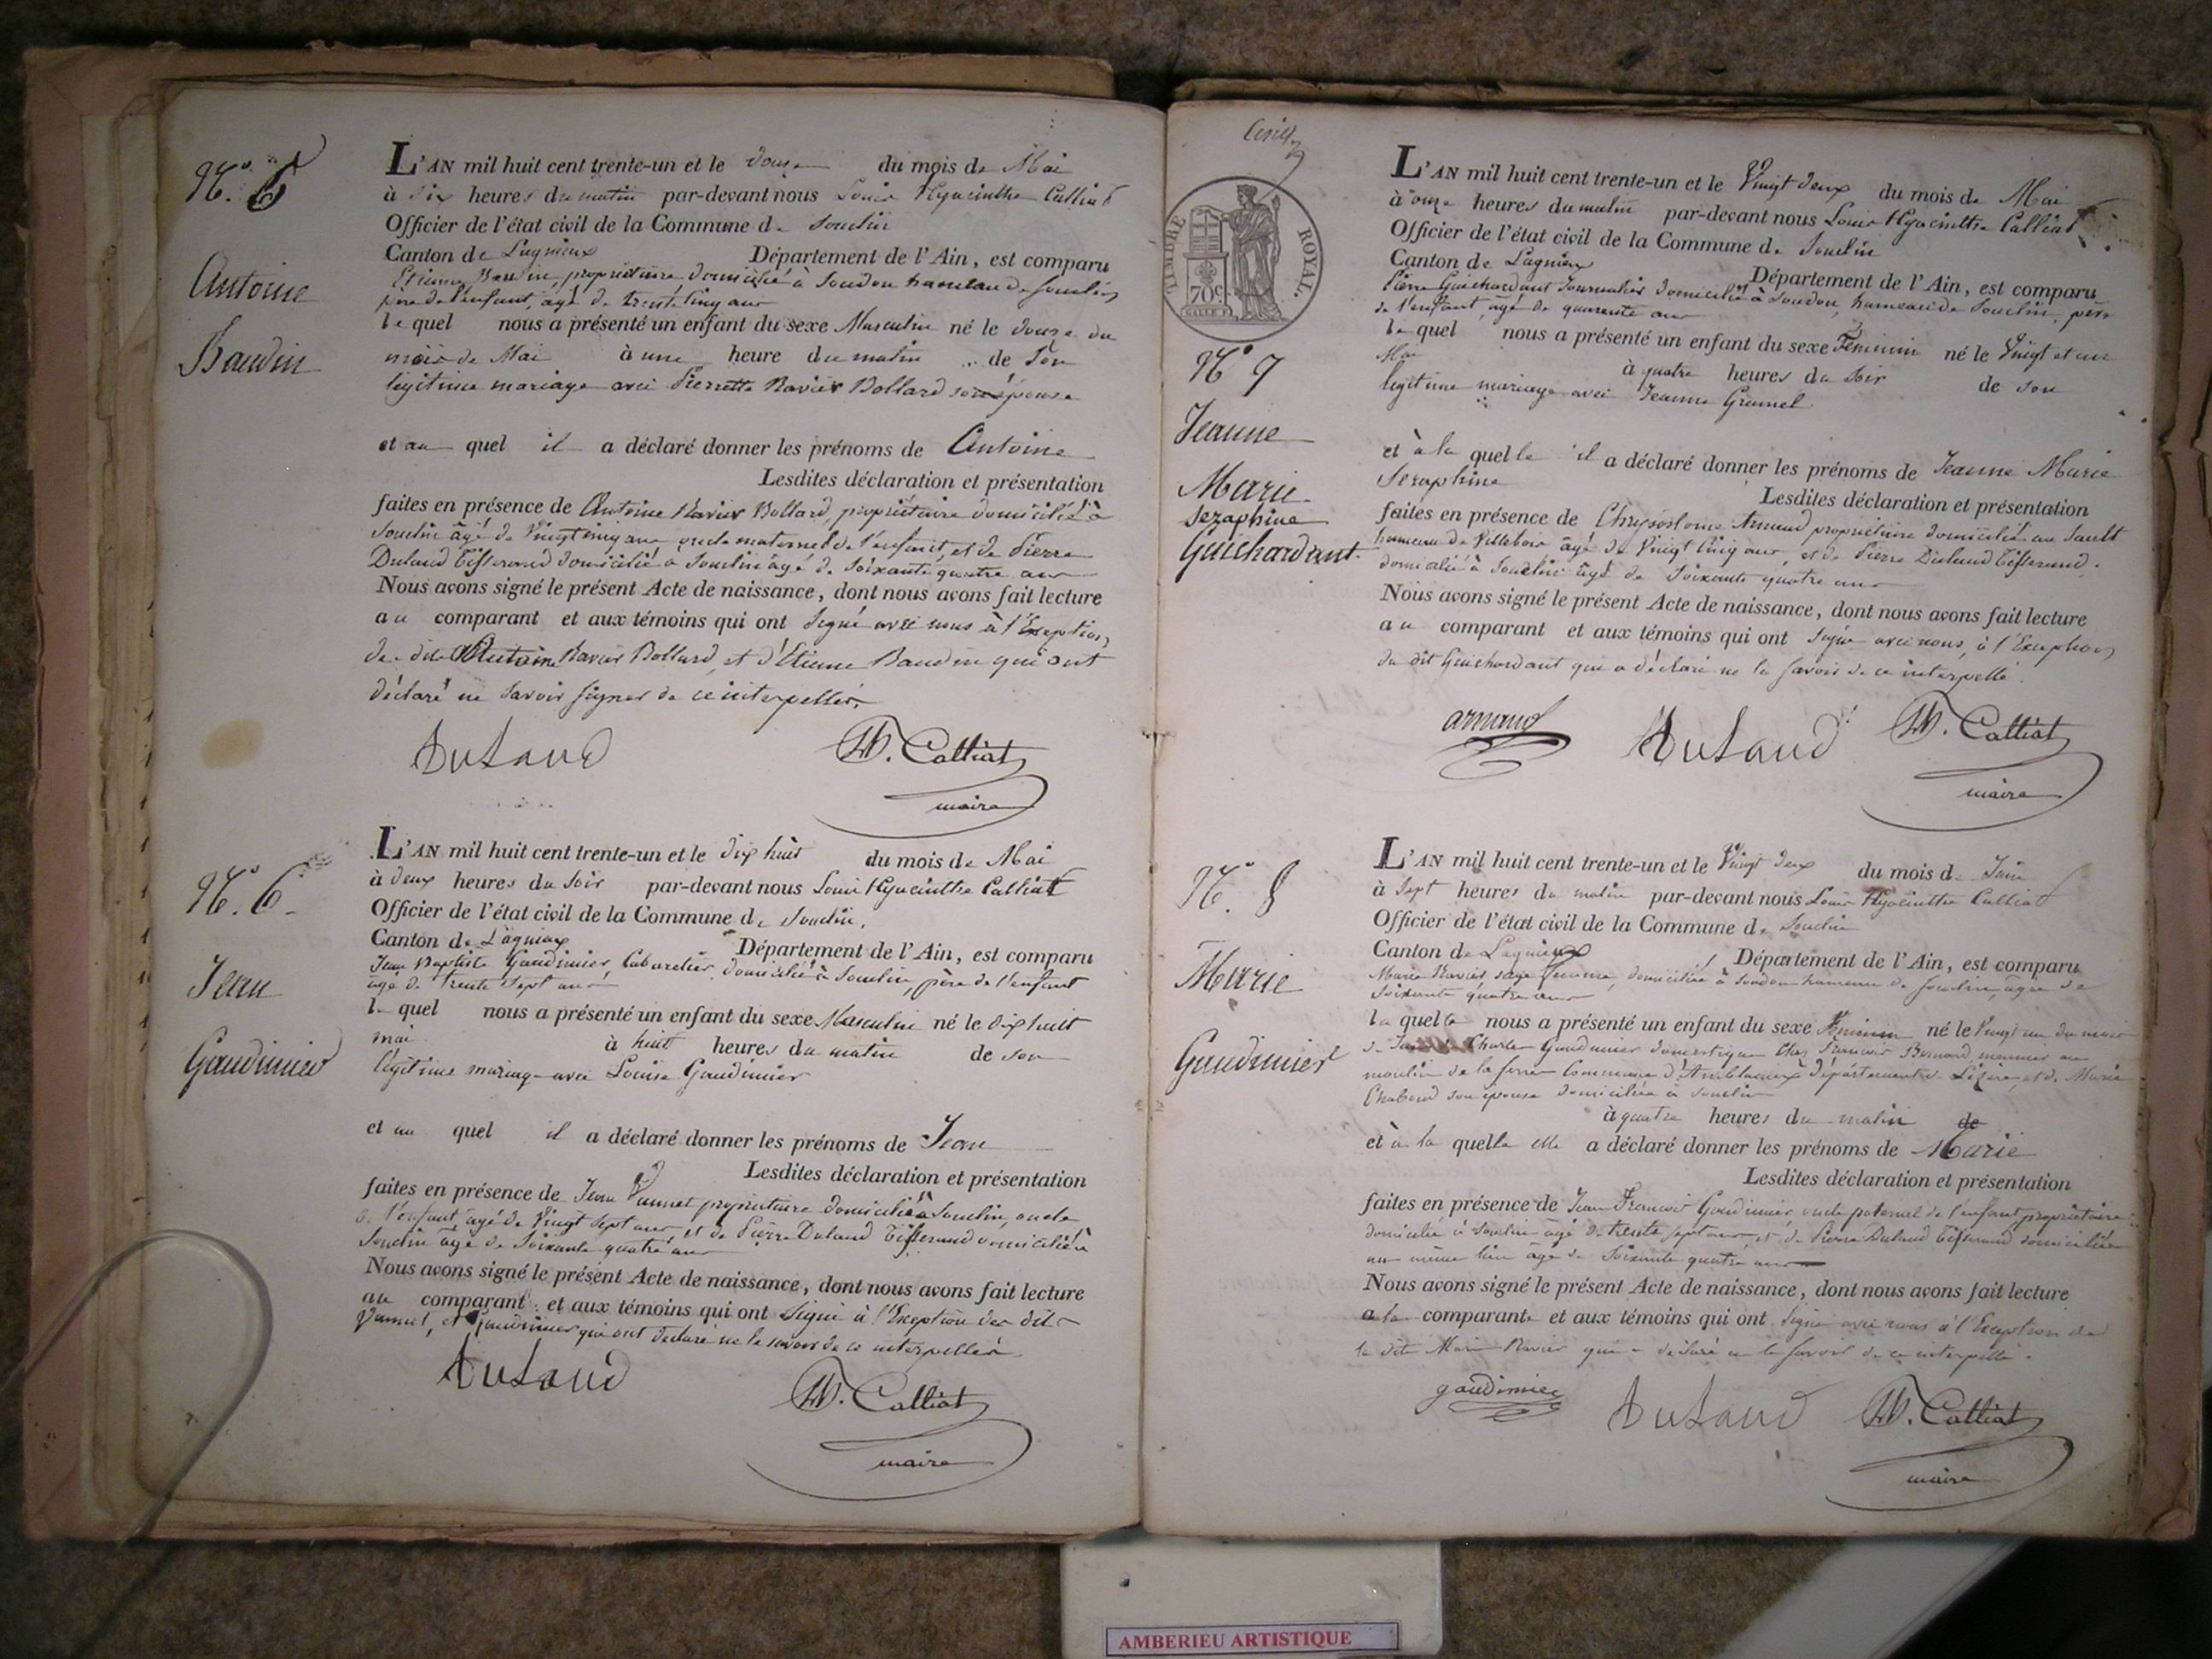 N.° 5
Antoine
Baudin
L'AN mil huit cent trente-un et le douze du mois de Mai
à dix heures du matin par-devant nous Louis Hyacinthe Calliat
Officier de l'état civil de la Commune de Souclin
Canton de Lagnieux Département de l'Ain, est comparu
Etienne Baudin, propriétaire domicilié à Soudon hameau de Souclin
père de l'enfant, âgé de trente cinq ans
lequel nous a présenté un enfant du sexe Masculin né le douze du
mois de Mai à une heure du matin de son
légitime mariage avec Pierrette Ravier Bollard son épouse
et au quel il a déclaré donner les prénoms de Antoine
Lesdites déclaration et présentation
faites en présence de Antoine Ravier Bollard, propriétaire domicilié à
Souclin âgé de Vingt cinq ans oncle maternel de l'enfant, et de Pierre
Dulaud Tisserand domicilié à Souclin âgé de Soixante quatre ans
Nous avons signé le présent Acte de naissance, dont nous avons fait lecture
au comparant et aux témoins qui ont Signé avec nous à l'Exception
de dit Antoine Ravier Bollard et d'Etienne Baudin qui ont
déclaré ne Savoir signer de ce interpellés.
Dulaud H. Calliat
maire
N.° 6
Jean
Gaudimier
L'AN mil huit cent trente-un et le dix huit du mois de Mai
à deux heures du Soir par-devant nous Louis Hyacinthe Calliat
Officier de l'état civil de la Commune de Souclin.
Canton de Lagnieux Département de l'Ain, est comparu
Jean Baptiste Gaudimier, Cabaretier, domicilié à Souclin, père de l'enfant
âgé de trente sept ans
lequel nous a présenté un enfant du sexe Masculin né le dix huit
mai à huit heures du matin de son
légitime mariage avec Louise Gaudimier
et au quel il a déclaré donner les prénoms de Jean
Lesdites déclaration et présentation
faites en présence de Jean Vannet propriétaire domicilié à Souclin, oncle
de l'enfant âgé de Vingt Sept ans et de Pierre Dulaud Tisserand domicilié à
Souclin âgé de Soixante quatre ans
Nous avons signé le présent Acte de naissance, dont nous avons fait lecture
au comparant et aux témoins qui ont Signé à l'Exception des dits
Vannet, et Gaudimier qui ont déclaré ne le savoir de ce interpellés
Dulaud H. Calliat
maire
TIMBRE ROYAL.
70c
N° 7
Jeanne
Marie
Seraphine
Guichardant
L'AN mil huit cent trente-un et le Vingt deux du mois de Mai
à onze heures du matin par-devant nous Louis Hyacinthe Calliat
Officier de l'état civil de la Commune de Souclin
Canton de Lagnieux Département de l'Ain, est comparu
Pierre Guichardant Journalier domicilié à Soudon, hameau de Souclin, père
de l'enfant, âgé de quarente ans
lequel nous a présenté un enfant du sexe Feminin né le Vingt et un
Mai à quatre heures du Soir de son
legitime mariage avec Jeanne Grumel
et à la quelle il a déclaré donner les prénoms de Jeanne Marie
Seraphine Lesdites déclaration et présentation
faites en présence de Chrysostome Arnaud propriétaire domicilié au Sault
hameau de Villebois âgé de Vingt Cinq ans, et de Pierre Dulaud Tisserand
domicilié à Souclin âgé de Soixante quatre ans
Nous avons signé le présent Acte de naissance, dont nous avons fait lecture
au comparant et aux témoins qui ont signé avec nous, à l'Exception
du dit Guichardant qui a déclaré ne le savoir de ce interpellé.
arnaud Dulaud H. Calliat
maire
N.° 8
Marie
Gaudimier
L'AN mil huit cent trente-un et le Vingt deux du mois de Juin
à Sept heures du matin par-devant nous Louis Hyacinthe Calliat
Officier de l'état civil de la Commune de Souclin
Canton de Lagnieux Département de l'Ain, est comparu
Marie Ravier, sage femme, domiciliée à Soudon hameau de Souclin, agée de
Soixante quatre ans
laquelle nous a présenté un enfant du sexe Féminin né le Vingt un du mois
de Juin de Charles Gaudimier domestique Chez François Bernard meunier au
moulin de la Commune d' département de L'Izère, et de Marie
Chaboud son épouse domiciliée à Souclin
à quatre heures du matin de
et à la quelle elle a déclaré donner les prénoms de Marie
Lesdites déclaration et présentation
faites en présence de Jean François Gaudimier oncle paternel de l'enfant propriétaire
domicilié à Souclin âgé de trente sept ans et de Pierre Dulaud Tisserand domicilié
au même lieu âgé de Soixante quatre ans
Nous avons signé le présent Acte de naissance, dont nous avons fait lecture
a la comparante et aux témoins qui ont Signé avec nous à l'Exception de
la dite Marie Ravier qui a déclaré ne le savoir de ce interpellé.
gaudimier Dulaud H. Calliat
maire
AMBERIEU ARTISTIQUE